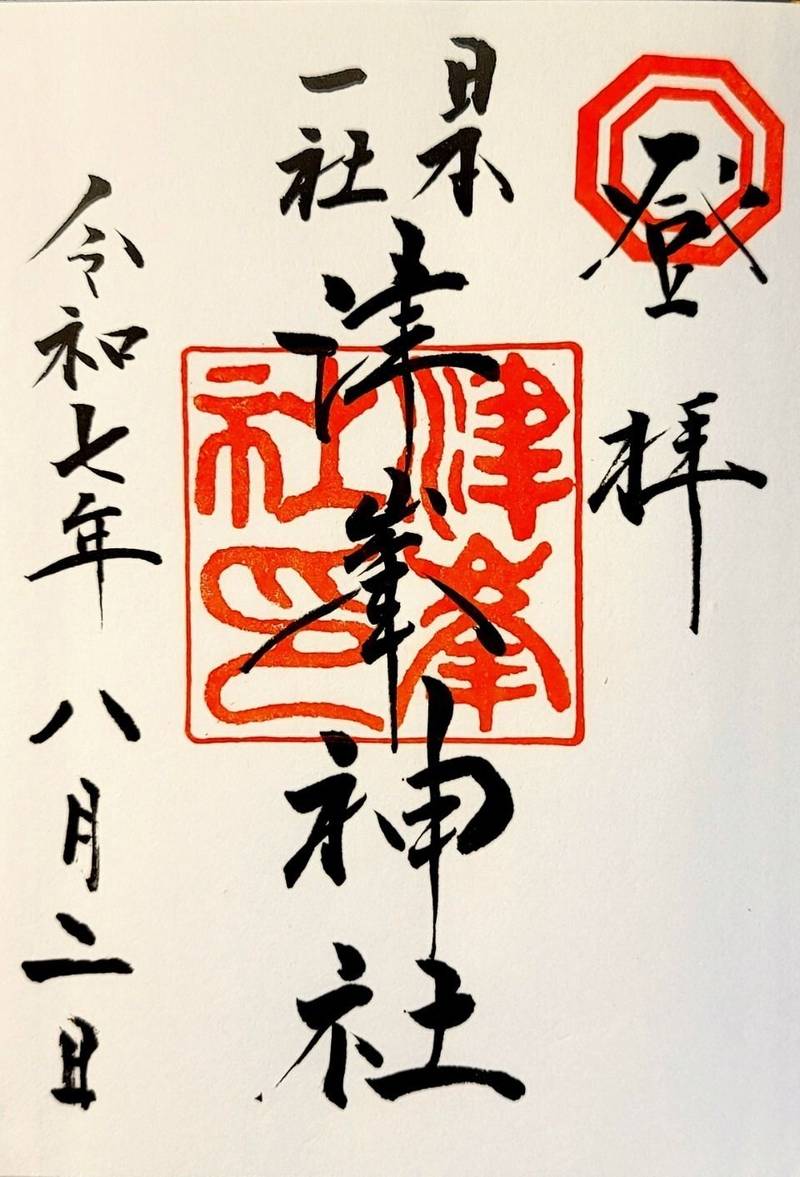 登拝
日本
一社
津峯神社
津峯
社印
令和七年 八月二日